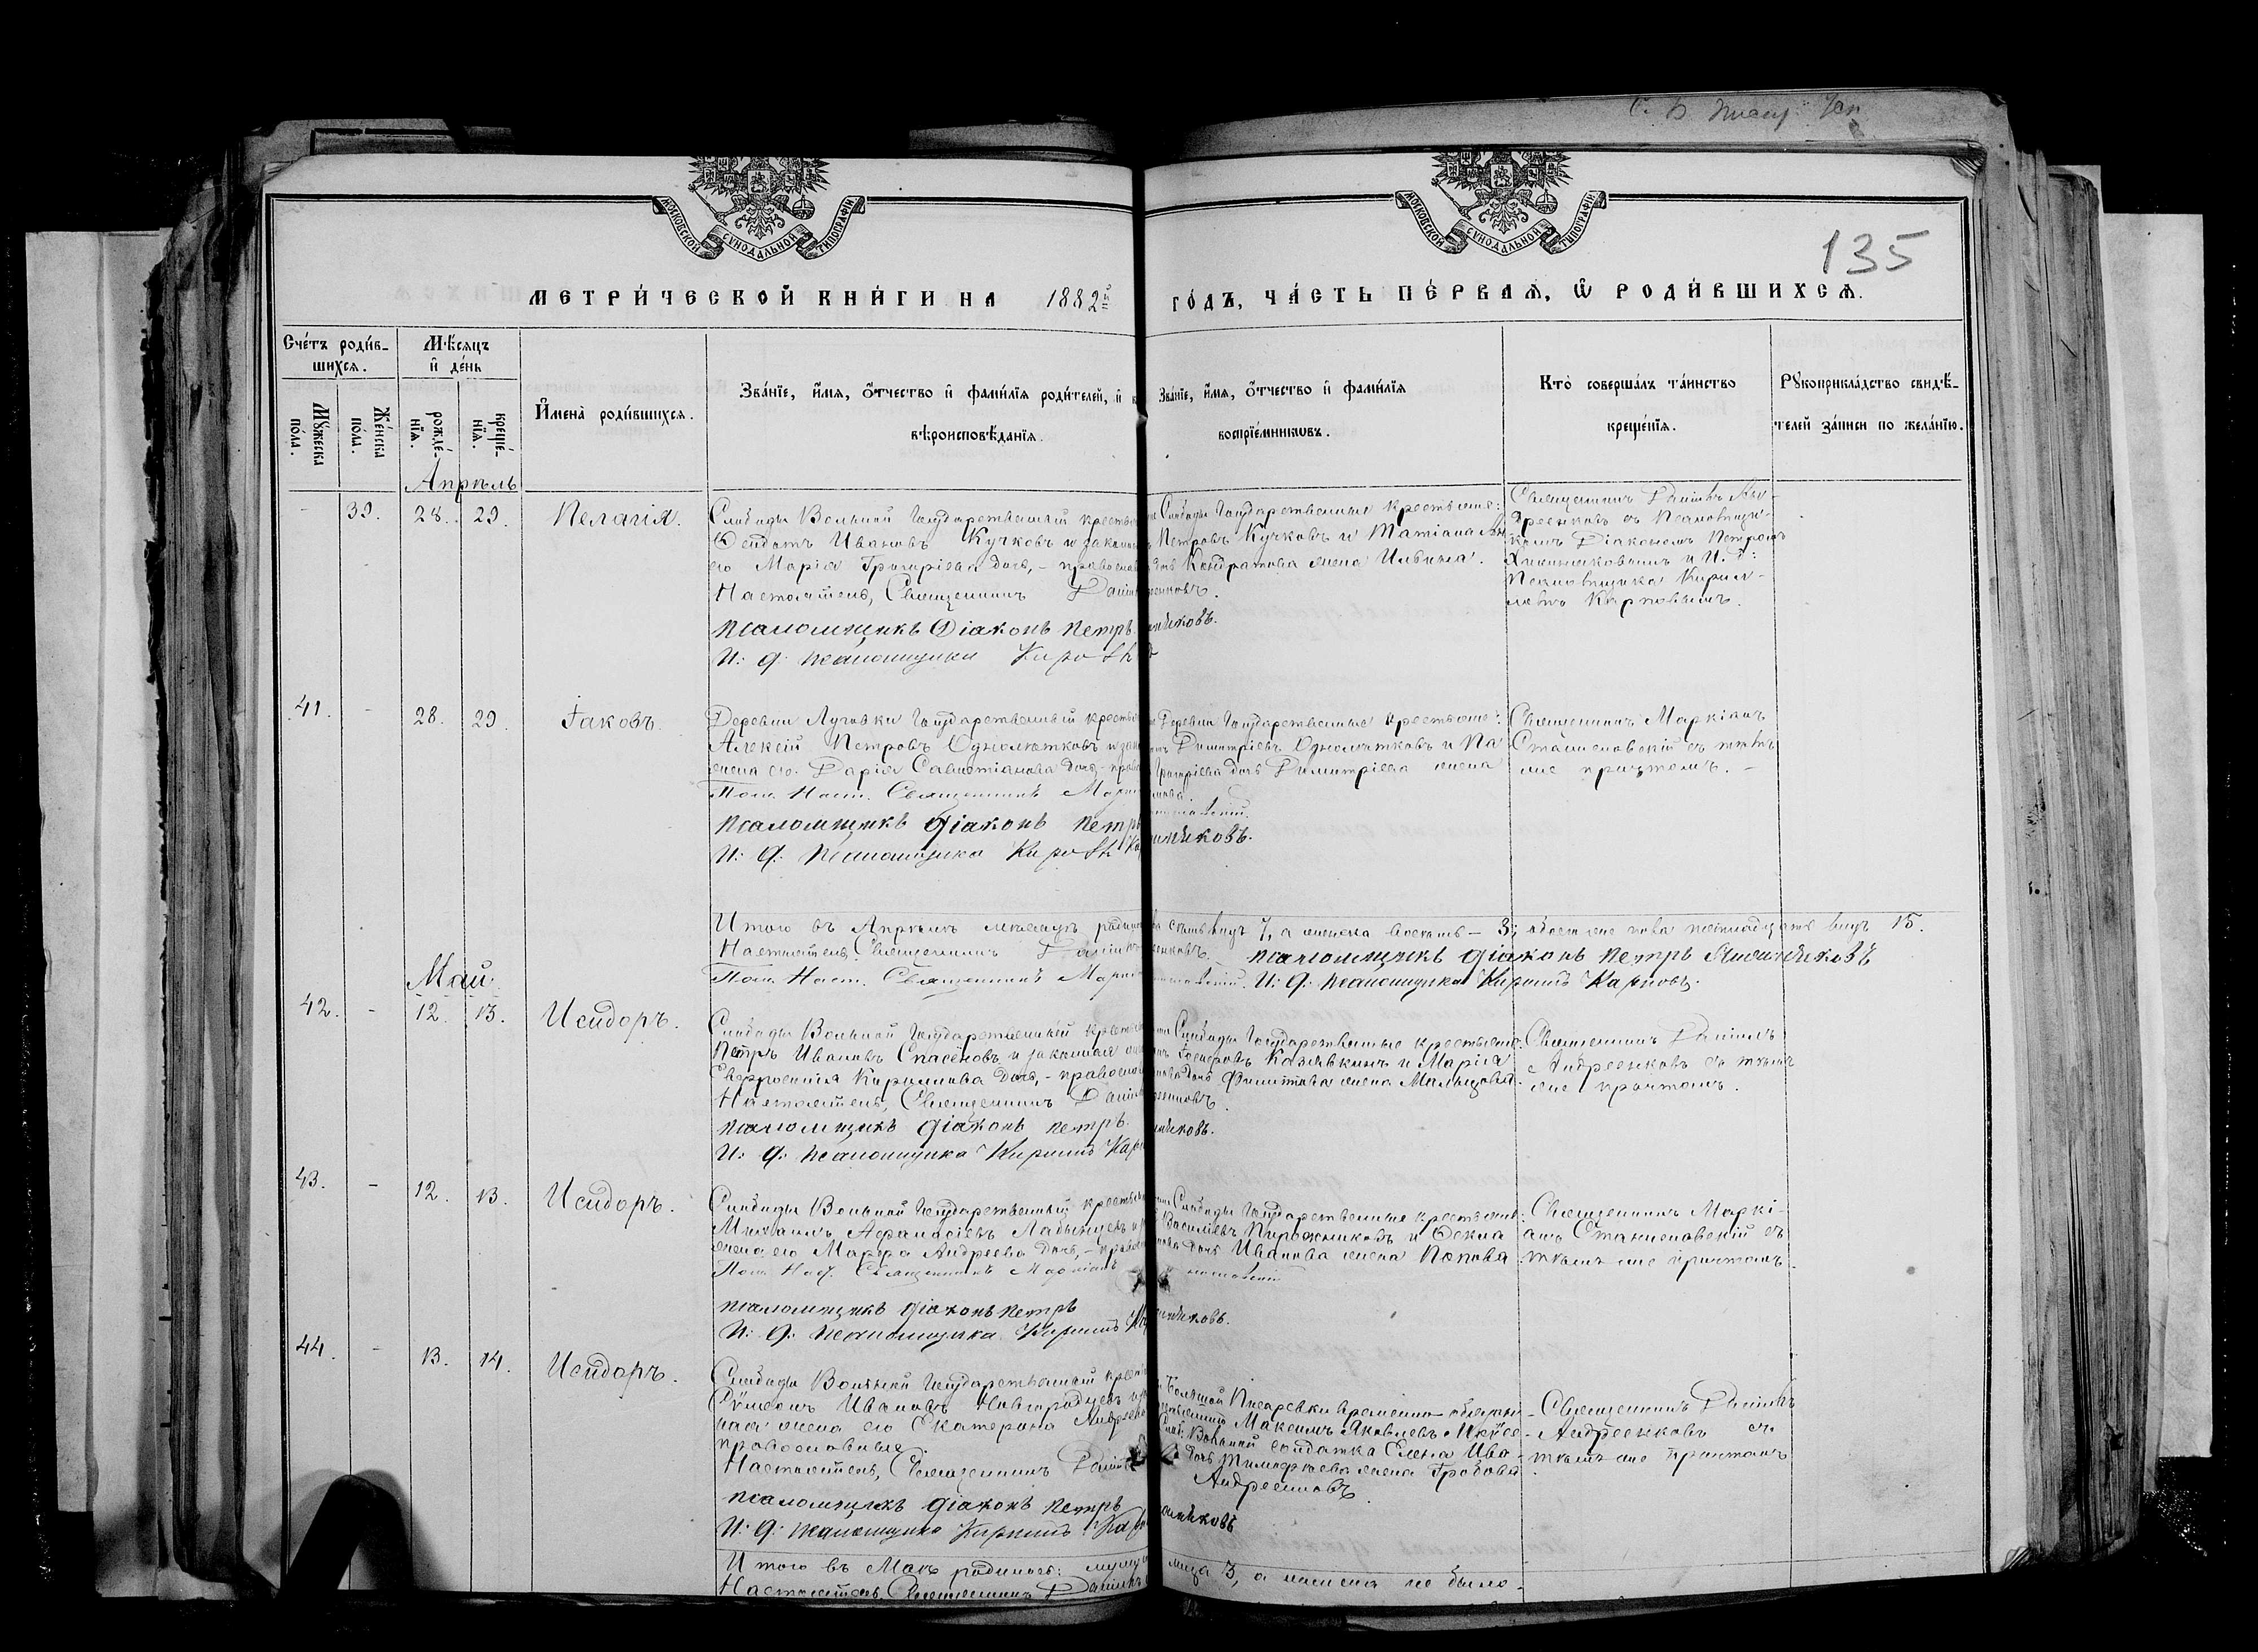 С. Б. Писар.
МОСКОВСКОЙ СУНОДАЛЬНОЙ ТИПОГРАФІИ
МОСКОВСКОЙ СУНОДАЛЬНОЙ ТИПОГРАФІИ
135
МЕТРИ́ЧЕСКОЙ КНИ́ГИ НА 1882й
ГО́ДЪ, ЧА́СТЬ ПЕ́РВАѦ, Ѡ РОДИ́ВШИХСѦ.
Сче́тъ роди́в-
шихсѧ.
Мꙋжеска по́ла.
Же́нска по́ла.
Мѣ́сѧцъ
и҆ де́нь
рожде́-
нїѧ.
креще́-
нїѧ.
И҆мена̀ роди́вшихсѧ.
Зва́нїе, и҆́мѧ, ѻ҆́тчество и҆ фами́лїѧ роди́телей, и҆
вѣроисповѣ́данїѧ.
Зва́нїе, и҆́мѧ, ѻ҆́тчество и҆ фами́лїѧ
воспрїе́мникѡвъ.
Кто̀ соверша́лъ та́инство
креще́нїѧ.
Рꙋкоприкла́дство свидѣ́-
телей за́писи по жела́нїю.
Апрѣль
39. 28. 29. Пелагія.
Слободы Вольной Государственный крестья
Ѳеодотъ Ивановъ Кучковъ и законн
его Марія Григоріева дочь, - православ
Настоятель, Священникъ Даніи
псаломщикъ Діаконъ Петръ
И. д. псаломщика
Слободы Государственные крестьяне:
Петровъ Кучковъ и Татіана
Кондратова жена Ильина.
еенковъ.
никовъ.
Священникъ Даніилъ Ан-
дреенковъ съ Псаломщи-
комъ Діакономъ Петромъ
и И. д:
Псаломщика Кирил-
ломъ Карповымъ.
41. - 28. 29. Іаковъ.
Деревни Луговки Государственный кресть
Алексій Петровъ Однолѣтковъ и зак
жена его Дарія Савостіанова дочь, - право
Пом. Наст. Священникъ Марк
псаломщикъ діаконъ петръ
И. д. псаломщика
Деревни Государственные крестьяне:
Димитріевъ Однолѣтковъ и Па
Григоріева дочь Димитріева жена
никовъ.
Священникъ Маркіанъ
Станиславскій съ тѣмъ
же причтомъ. -
Итого въ Апрѣлѣ мѣсяцѣ родило
семь 7, а женска восемь - 8; обоего же пола пятнадцать 15.
Настоятель, Священникъ Даніилъ
еенковъ. псаломщикъ діаконъ петръ
Пом. Наст. Священникъ Маркі
И. д. псаломщика Кириллъ Карповъ.
Май
42. - 12. 13. Исидоръ.
Слободы Вольной Государственный крестья
Петръ Ивановъ Спасёновъ и законная жен
Евфросинія Кириллова дочь, - православ
Настоятель, Священникъ Даніил
псаломщикъ діаконъ петръ
И. д. псаломщика Кириллъ Карп
Слободы Государственные крестьяне:
Козявкинъ и Марія
дочь Филиппова жена Мальцова.
никовъ.
Священникъ Даніилъ
Андреенковъ съ тѣмъ
же причтомъ.
43. - 12. 13. Исидоръ.
Слободы Вольной Государственный крестья
Михаилъ Аѳанасіевъ Лабынцевъ и
жена его Марфа Андреева дочь, - правос
Пом. Наст. Священникъ Маркіанъ
псаломщикъ діаконъ петръ
И. д. псаломщика Кириллъ
Слободы Государственные крестьяне:
Василіевъ Пирожниковъ и Ѳекла
дочь Иванова жена Попова
никовъ.
Священникъ Маркі-
анъ Станиславскій съ
тѣмъ же причтомъ.
44. - 13. 14. Исидоръ.
Слободы Вольной Государственный крест
Сѵмеонъ Ивановъ Новгородцевъ и
ная жена его Екатерина Андреева
православные.
Настоятель, Священникъ Даніилъ
псаломщикъ діаконъ петръ
И. д. псаломщика Кириллъ Кар
Большой Писаревки временно-обязан-
Максимъ Яковлевъ
Слоб. Вольной солдатка Елена Ива-
дочь Тимофеева жена Гробова
Андреенковъ.
никовъ
Священникъ Даніилъ
Андреенковъ съ
тѣмъ же причтомъ
Итого въ Маѣ родилось: муж
3, а женска не было.
Настоятель, Священникъ Даніилъ